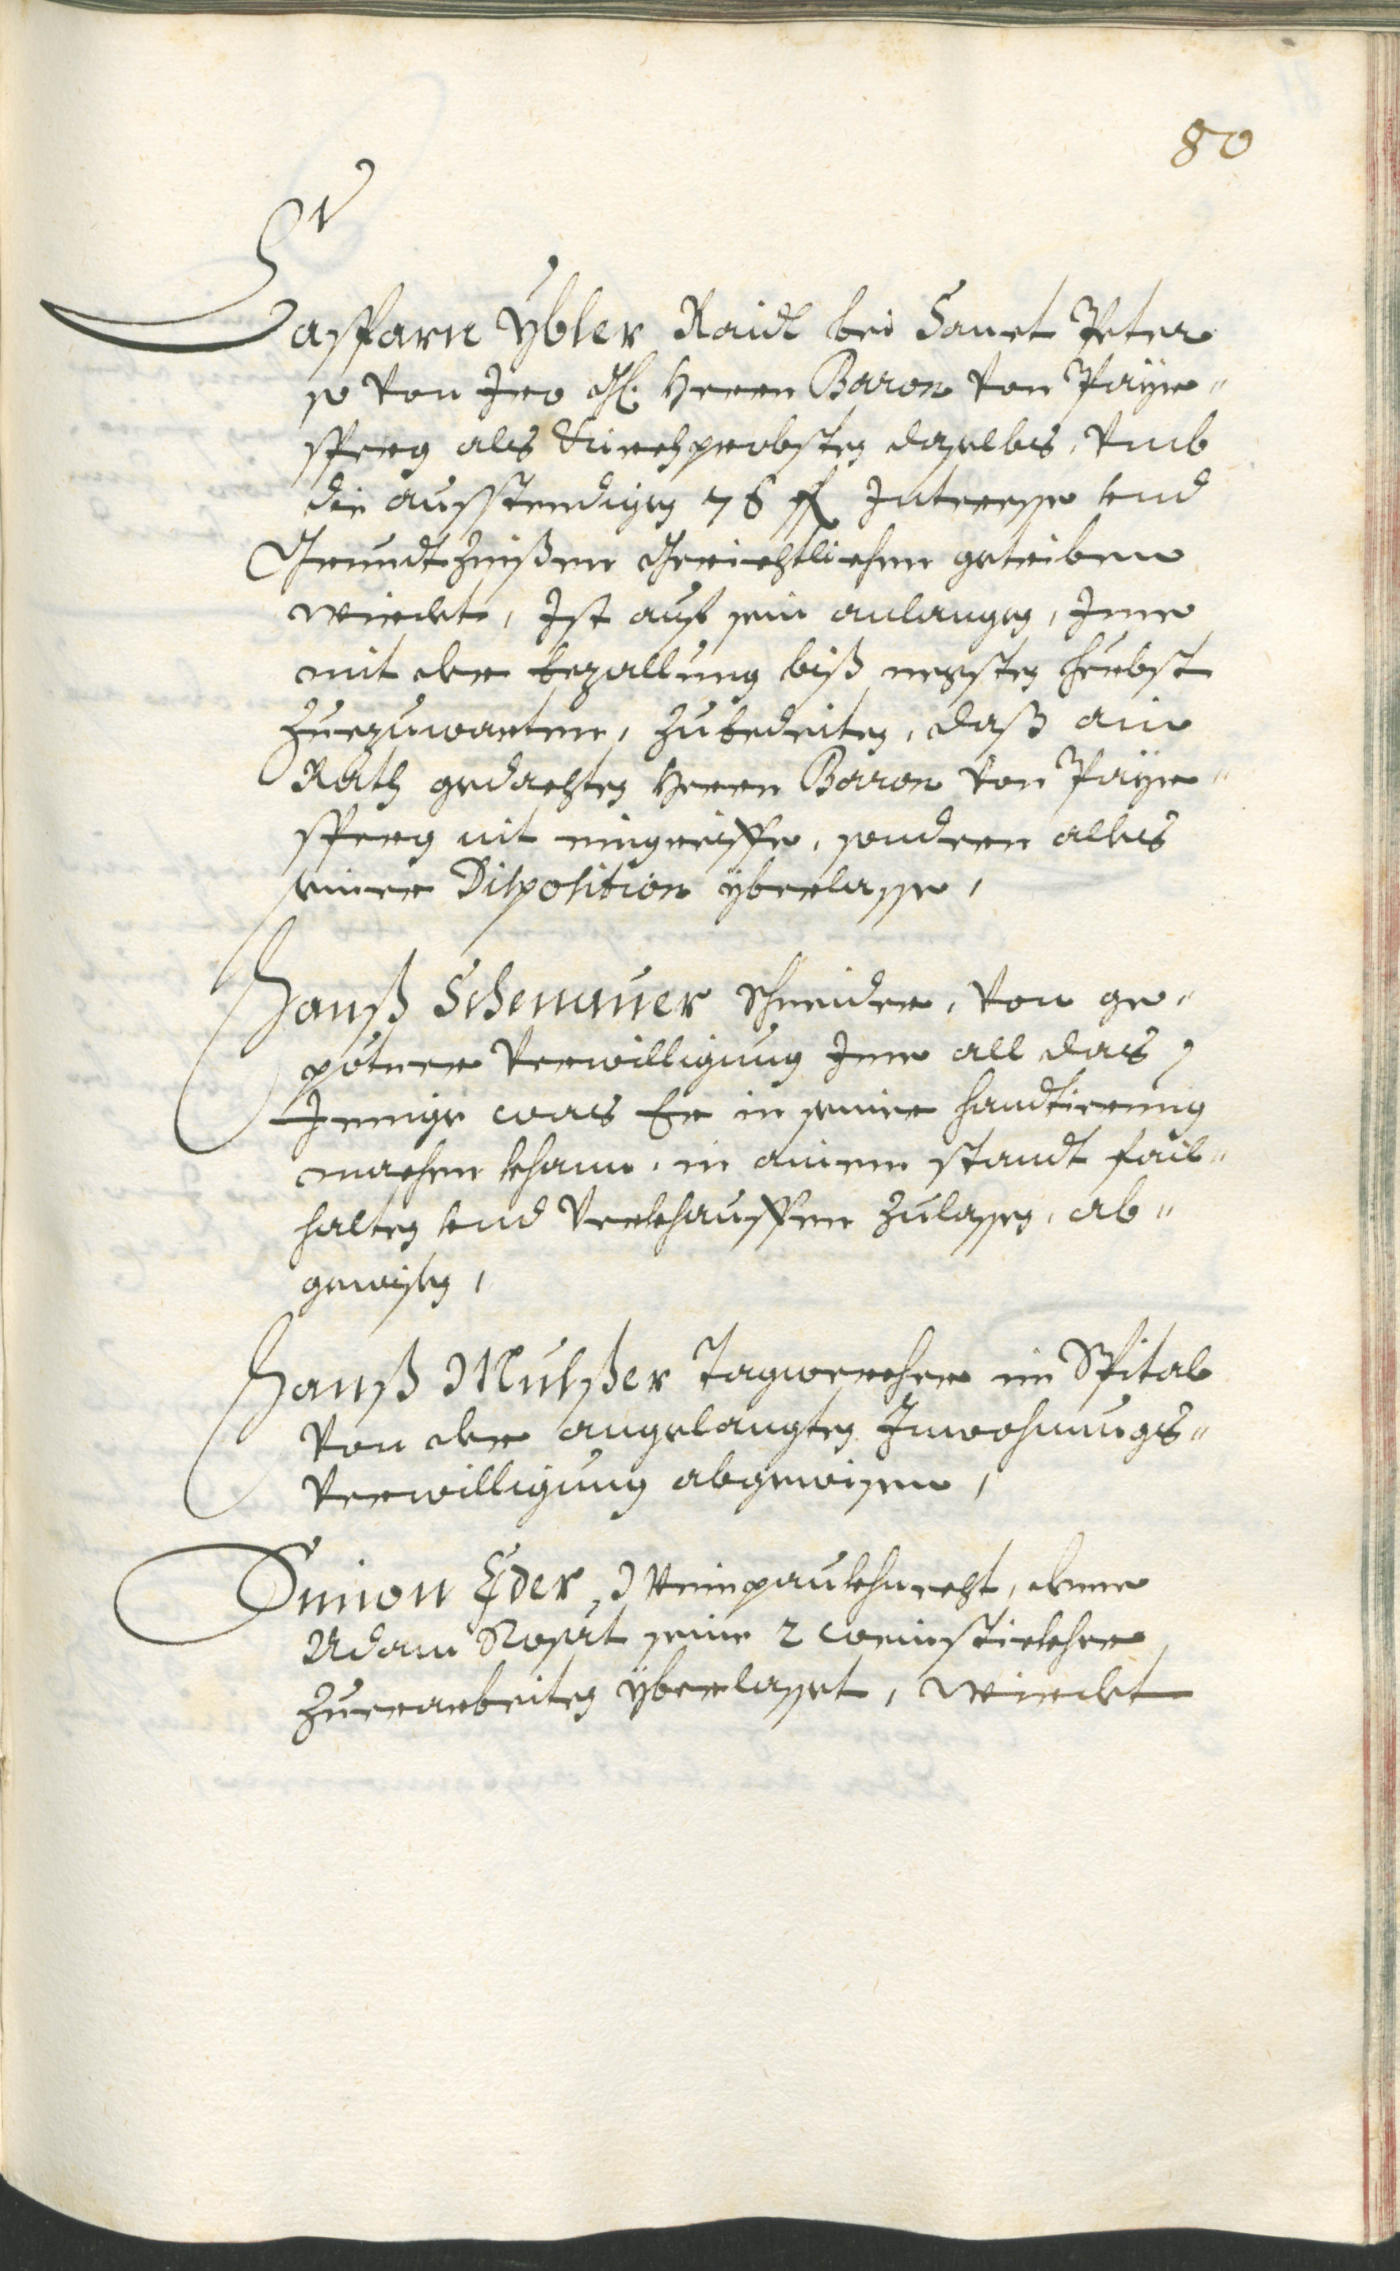 80
Casparn Ybler Raidl bei Sanct Peter
so von Iro Gl. Herrn Baron von Payr„
sperg als Kirchprobsten daselbs, vmb
die ausstendigen 78 fl Interesse vnd
Grundtzinßen Gerichtlichen getriben
wirdet, Ist auf sein anlangen, Ime
mit der bezallung biß negsten herbst
Zuezuwarten, Zubedeiten, daß ain
Rath gedachten Herrn Baron von Payr„
sperg nit eingreiffe, sondern alles
seiner Disposition yberlasse,
Hanß Schenauer Schneider, von ge„
pötner Verwilligung Ime all das
Jenige was Er in seiner handtierung
machen khann, in ainem standt fail„
halten vnd verkhauffen Zulassen, ab„
gewisen,
Hanß Mulßer Tagwercher im Spital
von der angelangten Inwohnungs„
verwilligung abgewisen,
Simon Eder, Weinpaukhnecht, deme
Adam seine 2 weinstickher
Zuerarbeiten yberlasset, wirdet